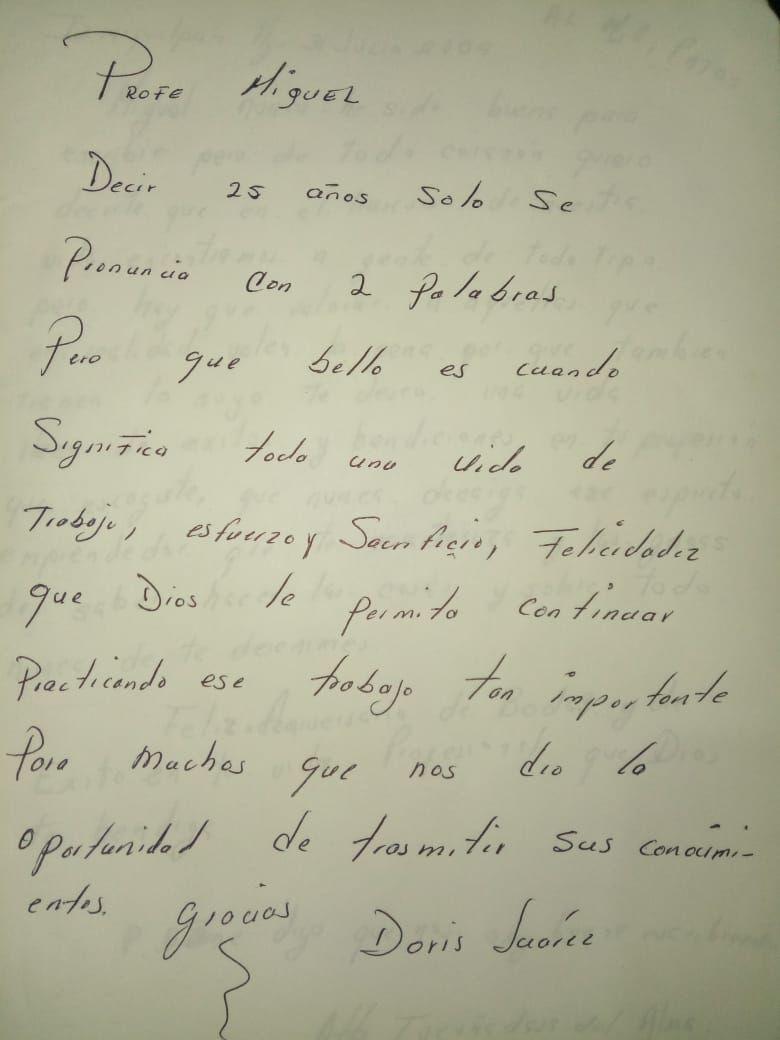 Profe Miguel
Decir 25 años solo se
Pronuncia con 2 palabras
Pero que bello es cuando
Significa toda una vida de
Trabajo, esfuerzo y Sacrificio, Felicidadez
que Dios le permita continuar
Practicando ese trabajo tan importante
Para muchas que nos dio la
oportunidad de trasmitir sus conocimi-
entos. gracias
Doris Suárez